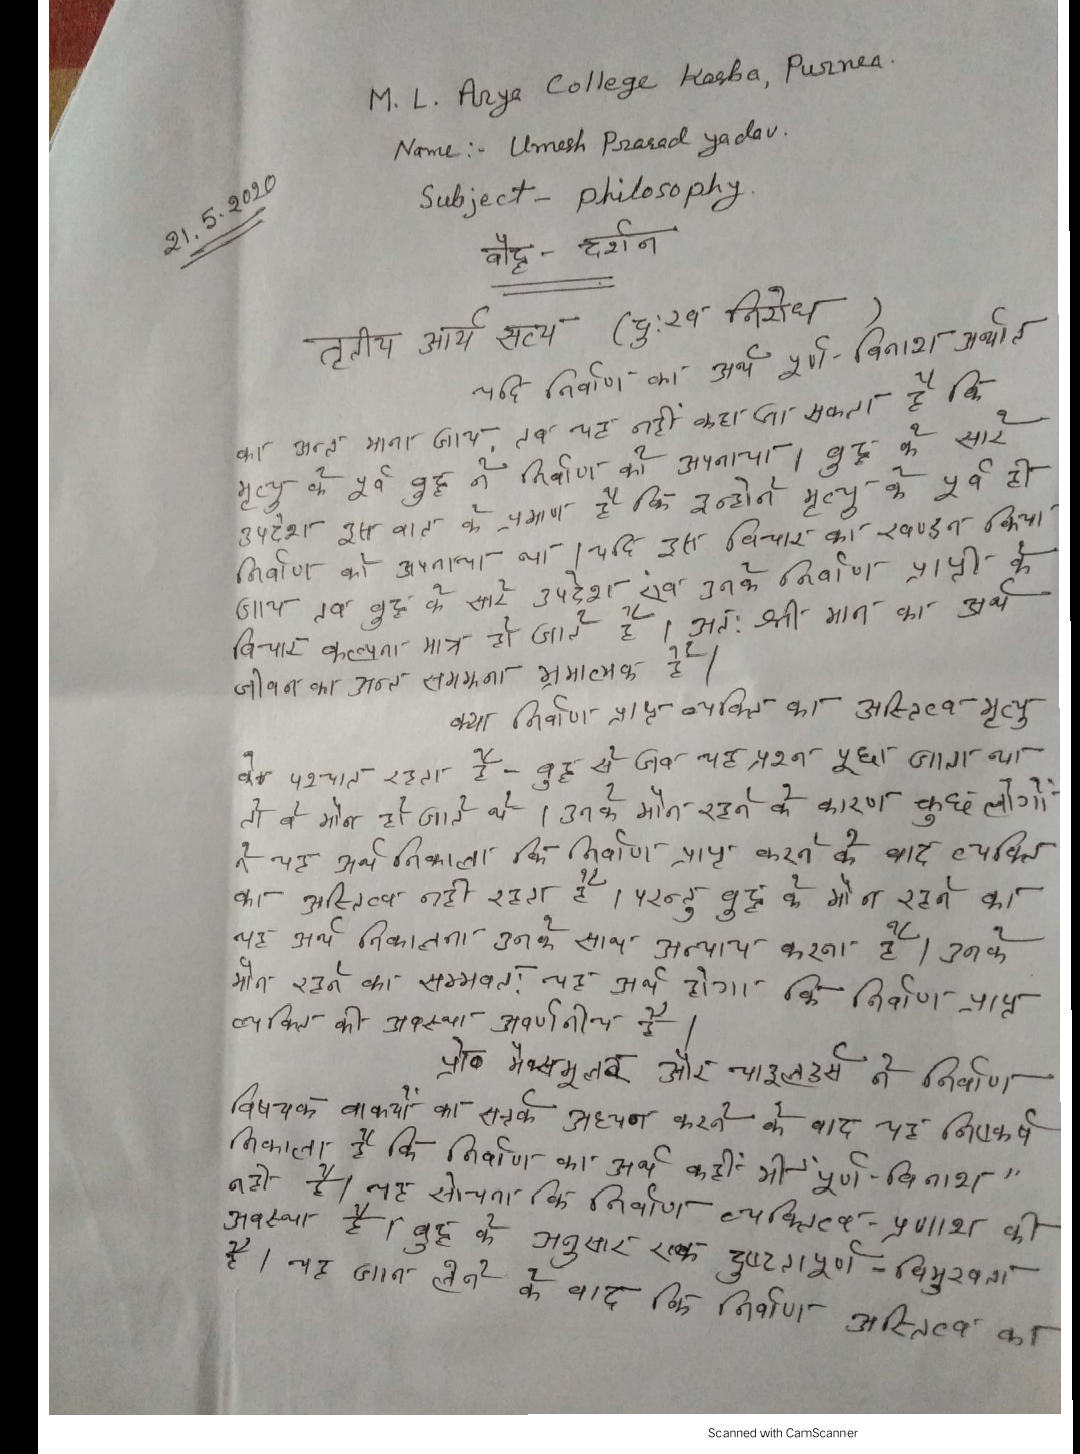 M. L. Arya College Kasba, Purnea.
Name:- Umesh Prasad yadav.
Subject- philosophy.
21.5.2020
बौद्ध - दर्शन
तृतीय आर्य सत्य (दु:ख निरोध)
यदि निर्वाण का अर्थ पूर्ण-विनाश अर्थात
का अन्त माना जाय, तब यह नहीं कहा जा सकता है कि
मृत्यु के पूर्व बुद्ध ने निर्वाण को अपनाया। बुद्ध के सारे
उपदेश इस बात के प्रमाण है कि इन्होने मृत्यु के पूर्व ही
निर्वाण को अपनाया था। यदि इस विचार का खण्डन किया
जाय तब बुद्ध के सारे उपदेश एंव उनके निर्वाण प्राप्ती के
विचार कल्पना मात्र हो जाते हैं। अत: का अर्थ
जीवन का अन्त समझना भ्रमात्मक है।
क्या निर्वाण प्राप्त व्यक्ति का अस्तित्व मृत्यु
के पश्चात रहता है - बुद्ध से जब यह प्रश्न पूछा जाता था
तो वे मौन हो जाते थे। उनके मौन रहने के कारण कुछ लोगों
ने यह अर्थ निकाला कि निर्वाण प्राप्त करने के बाद व्यक्ति
का अस्तित्व नही रहता है। परन्तु बुद्ध के मौन रहने का
यह अर्थ निकालना उनके साथ अन्याय करना है। उनके
मौन रहने का सम्भवत: यह अर्थ होगा कि निर्वाण प्राप्त
व्यक्ति की अवस्था अवर्णनीय है।
प्रो० मैक्समूलर और चाइलडर्स ने निर्वाण
विषयक वाक्यों का सतर्क अध्यन करने के बाद यह निष्कर्ष
निकाला है कि निर्वाण का अर्थ कहीं भी "पूर्ण-विनाश"
नही है। यह सोचना कि निर्वाण व्यक्तित्व-प्रणाश की
अवस्था है। बुद्ध के अनुसार एक दुष्टतापूर्ण-विमुखता
है। यह जान लेने के बाद कि निर्वाण अस्तित्व का
Scanned with CamScanner